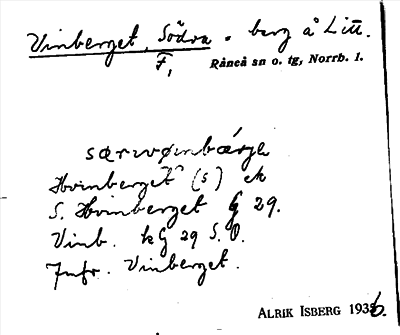 Vinberget, Södra - berg å Litt.
F,
Råneå sn o. tg, Norrb. l.
særvøinbærje
Hvinberget (s) ek
S. Hvinberget G 29.
Vinb. kG 29 S.O.
Jmfr. Vinberget.
ALRIK ISBERG 1936.